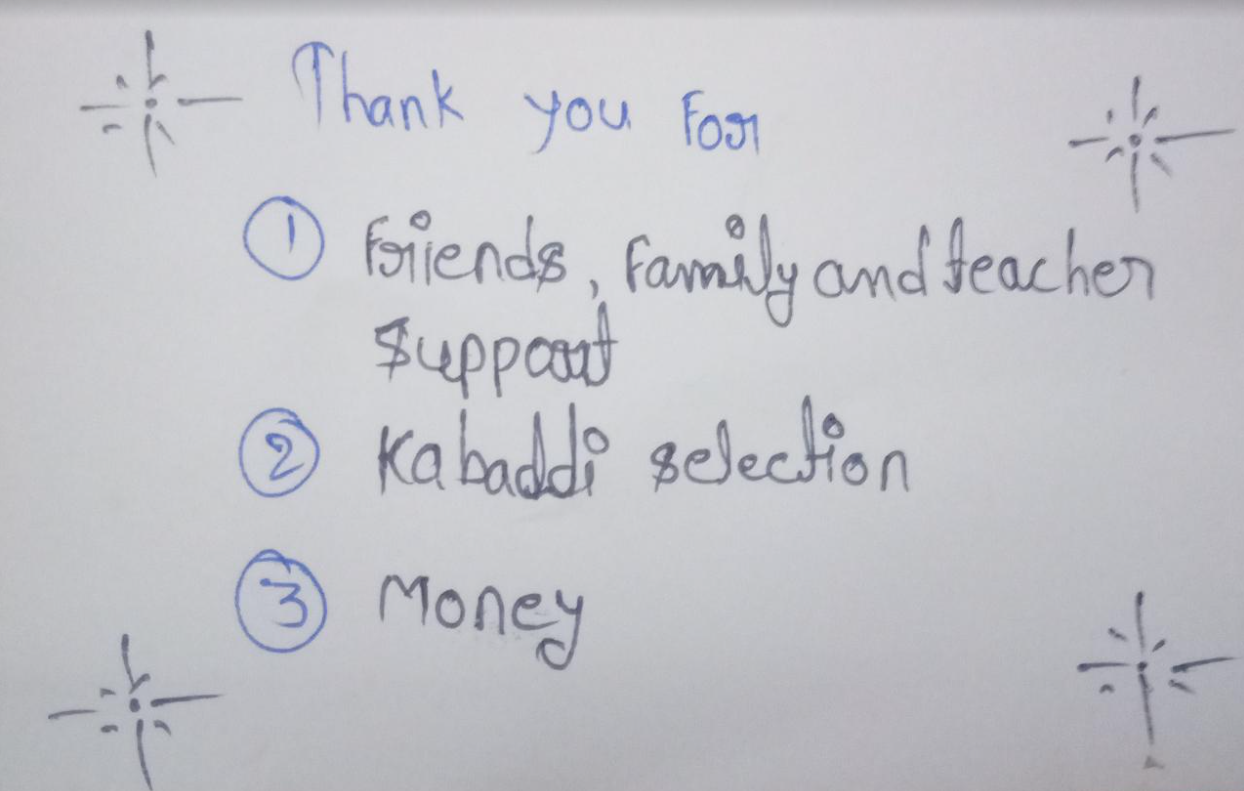 Thank you For
1 Friends, Family and teacher
Support
2 Kabaddi selection
3 Money